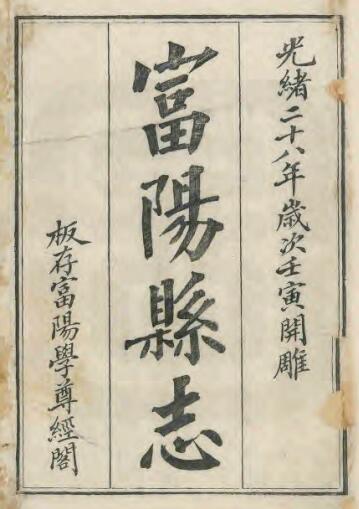 光緒二十八年歲次壬寅開雕
富陽縣志
板存富陽學尊經閣